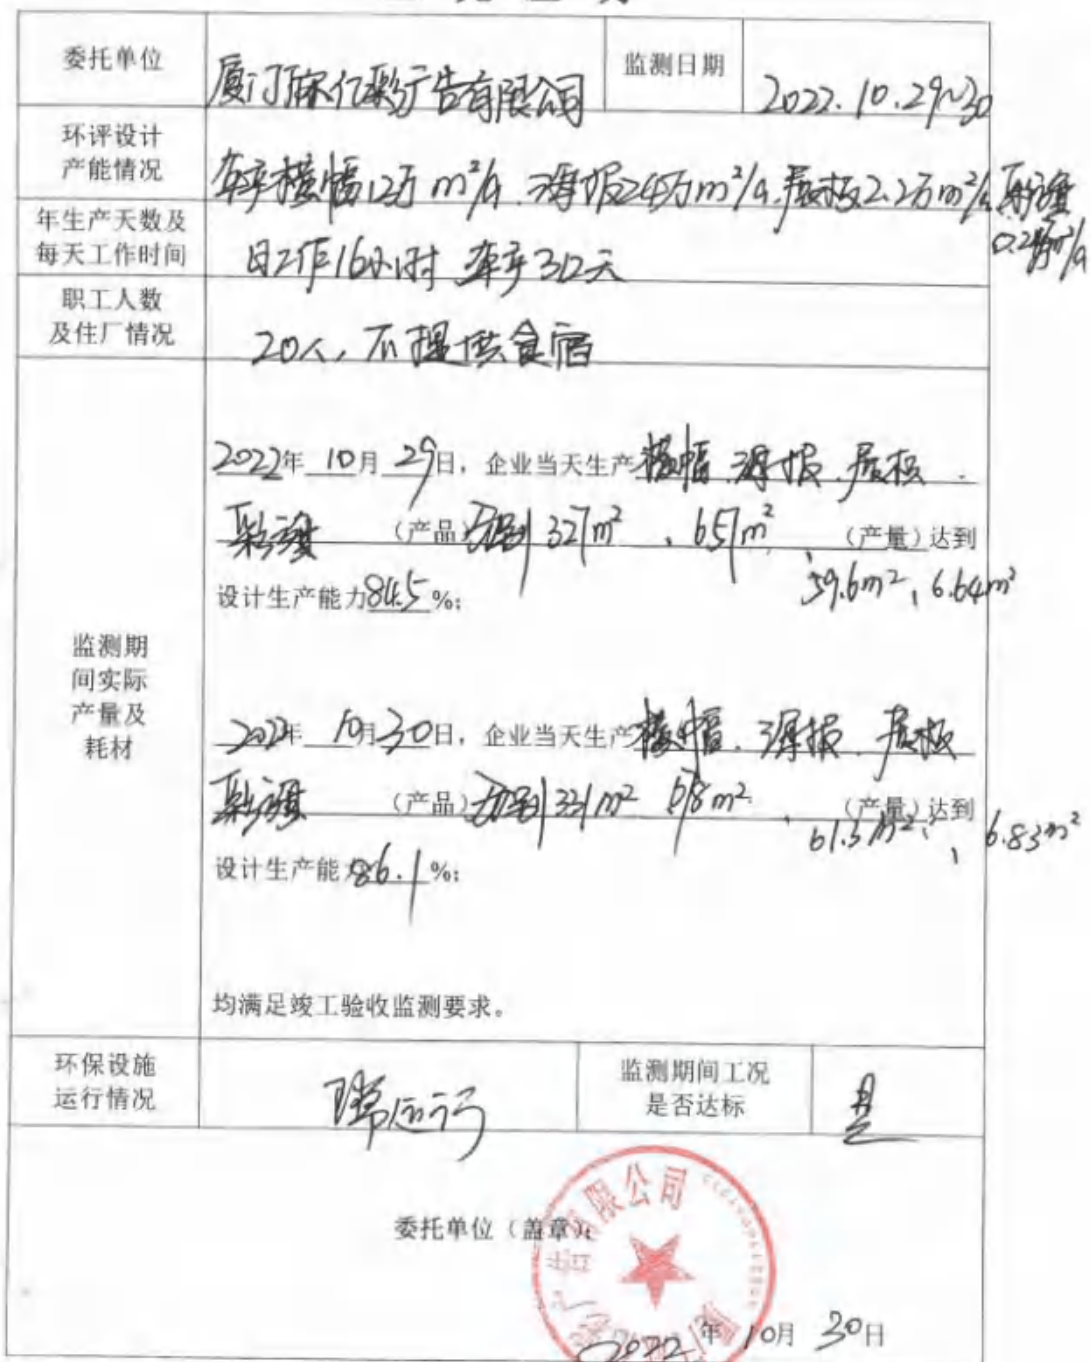 委托单位
厦门 亿彩广告有限公司
监测日期
2022.10.29~30
环评设计
产能情况
年产横幅12万m²/a、海报24万m²/a、展板2.2万m²/a、彩旗
m²/a
年生产天数及
每天工作时间
日工作16小时 年产312天
职工人数
及住厂情况
20人，不提供食宿
监测期
间实际
产量及
耗材
2022年 10月 29日，企业当天生产横幅、海报、展板、
彩旗 （产品）分别327m²、657m²、（产量）达到
59.6m²、6.64m²
设计生产能力84.5%；
2022年 10月30日，企业当天生产横幅、海报、展板
彩旗 （产品）分别331m² 678m²、（产量）达到
61.3m²、6.83m²
设计生产能力86.1%；
均满足竣工验收监测要求。
环保设施
运行情况
正常运行
监测期间工况
是否达标
是
委托单位（盖章）：
广告有限公司
2022年10月30日